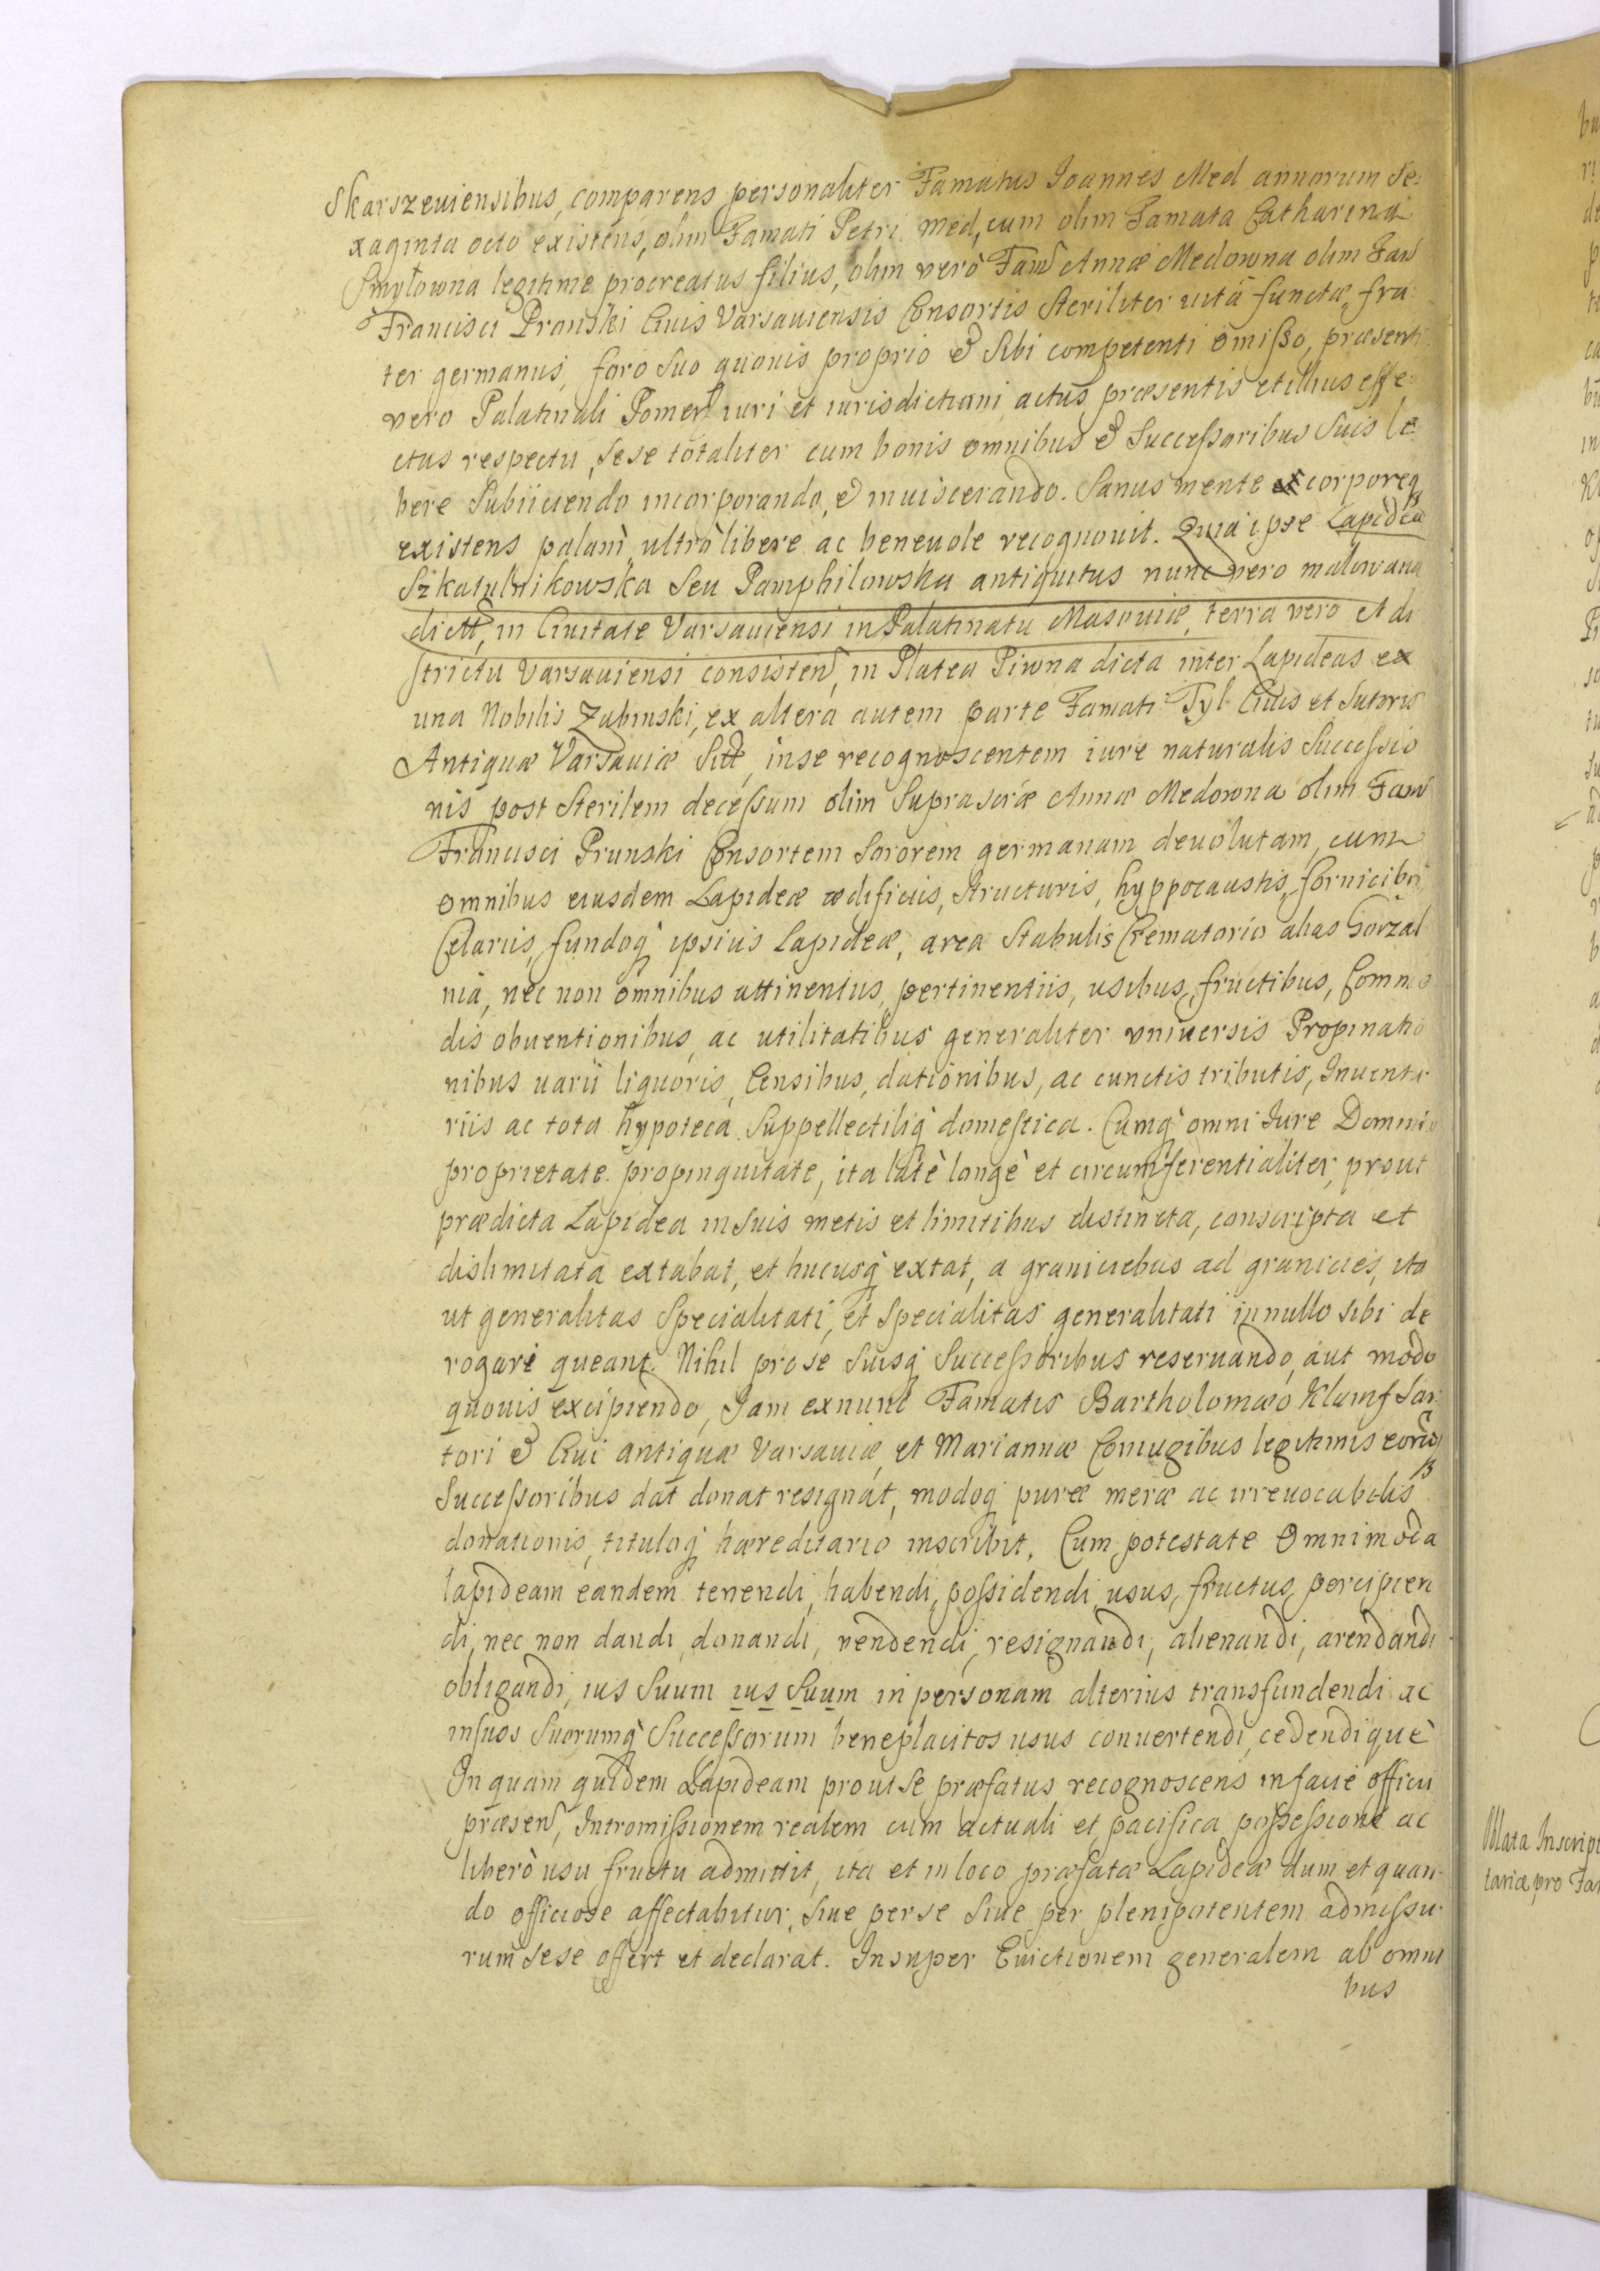 Skarszeuiensibus, comparens personaliter Famatus Ioannes Med annorum Se:
xaginta octo existens, olim Famati Petri Med, cum olim Famata Catharina
Smyłowna legitime procreatus filius, olim verò Fam Annæ Medowna olim Fam
Francisci Pronski Ciuis Varsauiensis Consortis Steriliter uitâ functæ, fra
ter germanus, foro Suo quouis proprio & Sibi competenti omißo, præsenti
vero Palatinali Pomer iuri et iurisdictioni, actus præsentis et illius effe
ctus respectu, Sese totaliter cum bonis omnibus & Succeßoribus Suis li
bere Subiiciendo incorporando, & inuiscerando. Sanus mente corporeq
existens palam ultrò libere ac beneuole recognouit. Quia ipse Lapideā
Szkatulnikowska Seu Pamphilowska antiquitus nunc vero malowana
dictt, in Ciuitate Varsauiensi in Palatinatu Masouiæ, terra vero et di
strictu Varsauiensi consisten, in Platea Piwna dicta inter Lapideas ex
una Nobilis Zubinski, ex altera autem parte Famati Tyl Ciuis et Sutoris
Antiquæ Varsauiæ Sitt, inse recognoscentem iure naturalis Succeßio
nis post Sterilem deceßum olim Suprascræ Annæ Medowna olim Fam
Francisci Prunski Consortem Sororem germanam deuolutam, cum
omnibus eiusdem Lapideæ ædificiis, Structuris, hyppocaustis, fornicibū
Celariis, fundoq ipsius Lapideæ, area Stabulis Crematorio alias Gorzal
nia, nec non omnibus attinentiis, pertinentiis, usibus, fructibus, Commo
dis obuentionibus, ac utilitatibus generaliter vniuersis Propinatio
nibus uarii liquoris, Censibus, dationibus, ac cunctis tributis, Inuenta
riis ac tota hypoteca Suppellectiliq domestica. Cumq omni Iure Dominio
proprietate propinquitate, ita latè longè et circumferentialiter, prout
prædicta Lapidea in Suis metis et limitibus distincta, conscripta et
dislimitata extabat, et hucusq extat, a graniciebus ad granicies, ita
ut generalitas Specialitati, et Specialitas generalitati in nullo sibi de
rogari queant. Nihil pro se Suisq Succeßoribus reseruando, aut modo
quouis excipiendo, Iam exnunc Famatis Bartholomæo Klamf Sar
tori & Ciui antiquæ Varsauiæ, et Mariannæ Coniugibus legitimis eorūq
Succeßoribus dat donat resignat, modoq puræ meræ ac irreuocabilis
donationis, tituloq hæreditario inscribit. Cum potestate Omnimoda
lapideam eandem tenendi, habendi, poßidendi, usus, fructus, percipien
di, nec non dandi, donandi, vendendi, resignandi, alienandi, arendandi
obligandi, ius Suum ius Suum in personam alterius transfundendi ac
insuos Suorumq Succeßorum beneplacitos usus conuertendi, cedendique
In quam quidem Lapideam prout Se præfatus recognoscens in facie officii
præsen, Intromißionem realem cum actuali et pacifica poßeßione ac
liberò usu fructu admittit, ita et in loco præfatæ Lapideæ dum et quan
do officiose affectabitur, Siue per se Siue per plenipotentem admißu
rum Sese offert et declarat. Insuper Euictionem generalem ab omni
bus
Illata Inscript
tariæ pro Fam